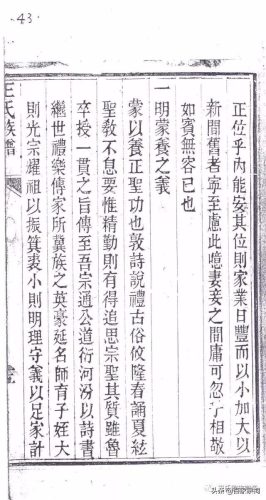 43
正位乎內能安其位則家業日豐而以小加大以
新間舊者寧至慮此噫妻妾之間庸可忽乎相敬
如賓無容已也
一明蒙養之義
蒙以養正聖功也敦詩說禮古俗攸隆春誦夏絃
聖教不息要惟精勤則有得追思宗聖其質雖魯
卒授一貫之旨傳至吾宗通公道衍河汾以詩書
繼世禮樂傳家所冀族之英豪延名師育子姪大
則光宗耀祖以振箕裘小則明理守義以足家計
王氏族譜